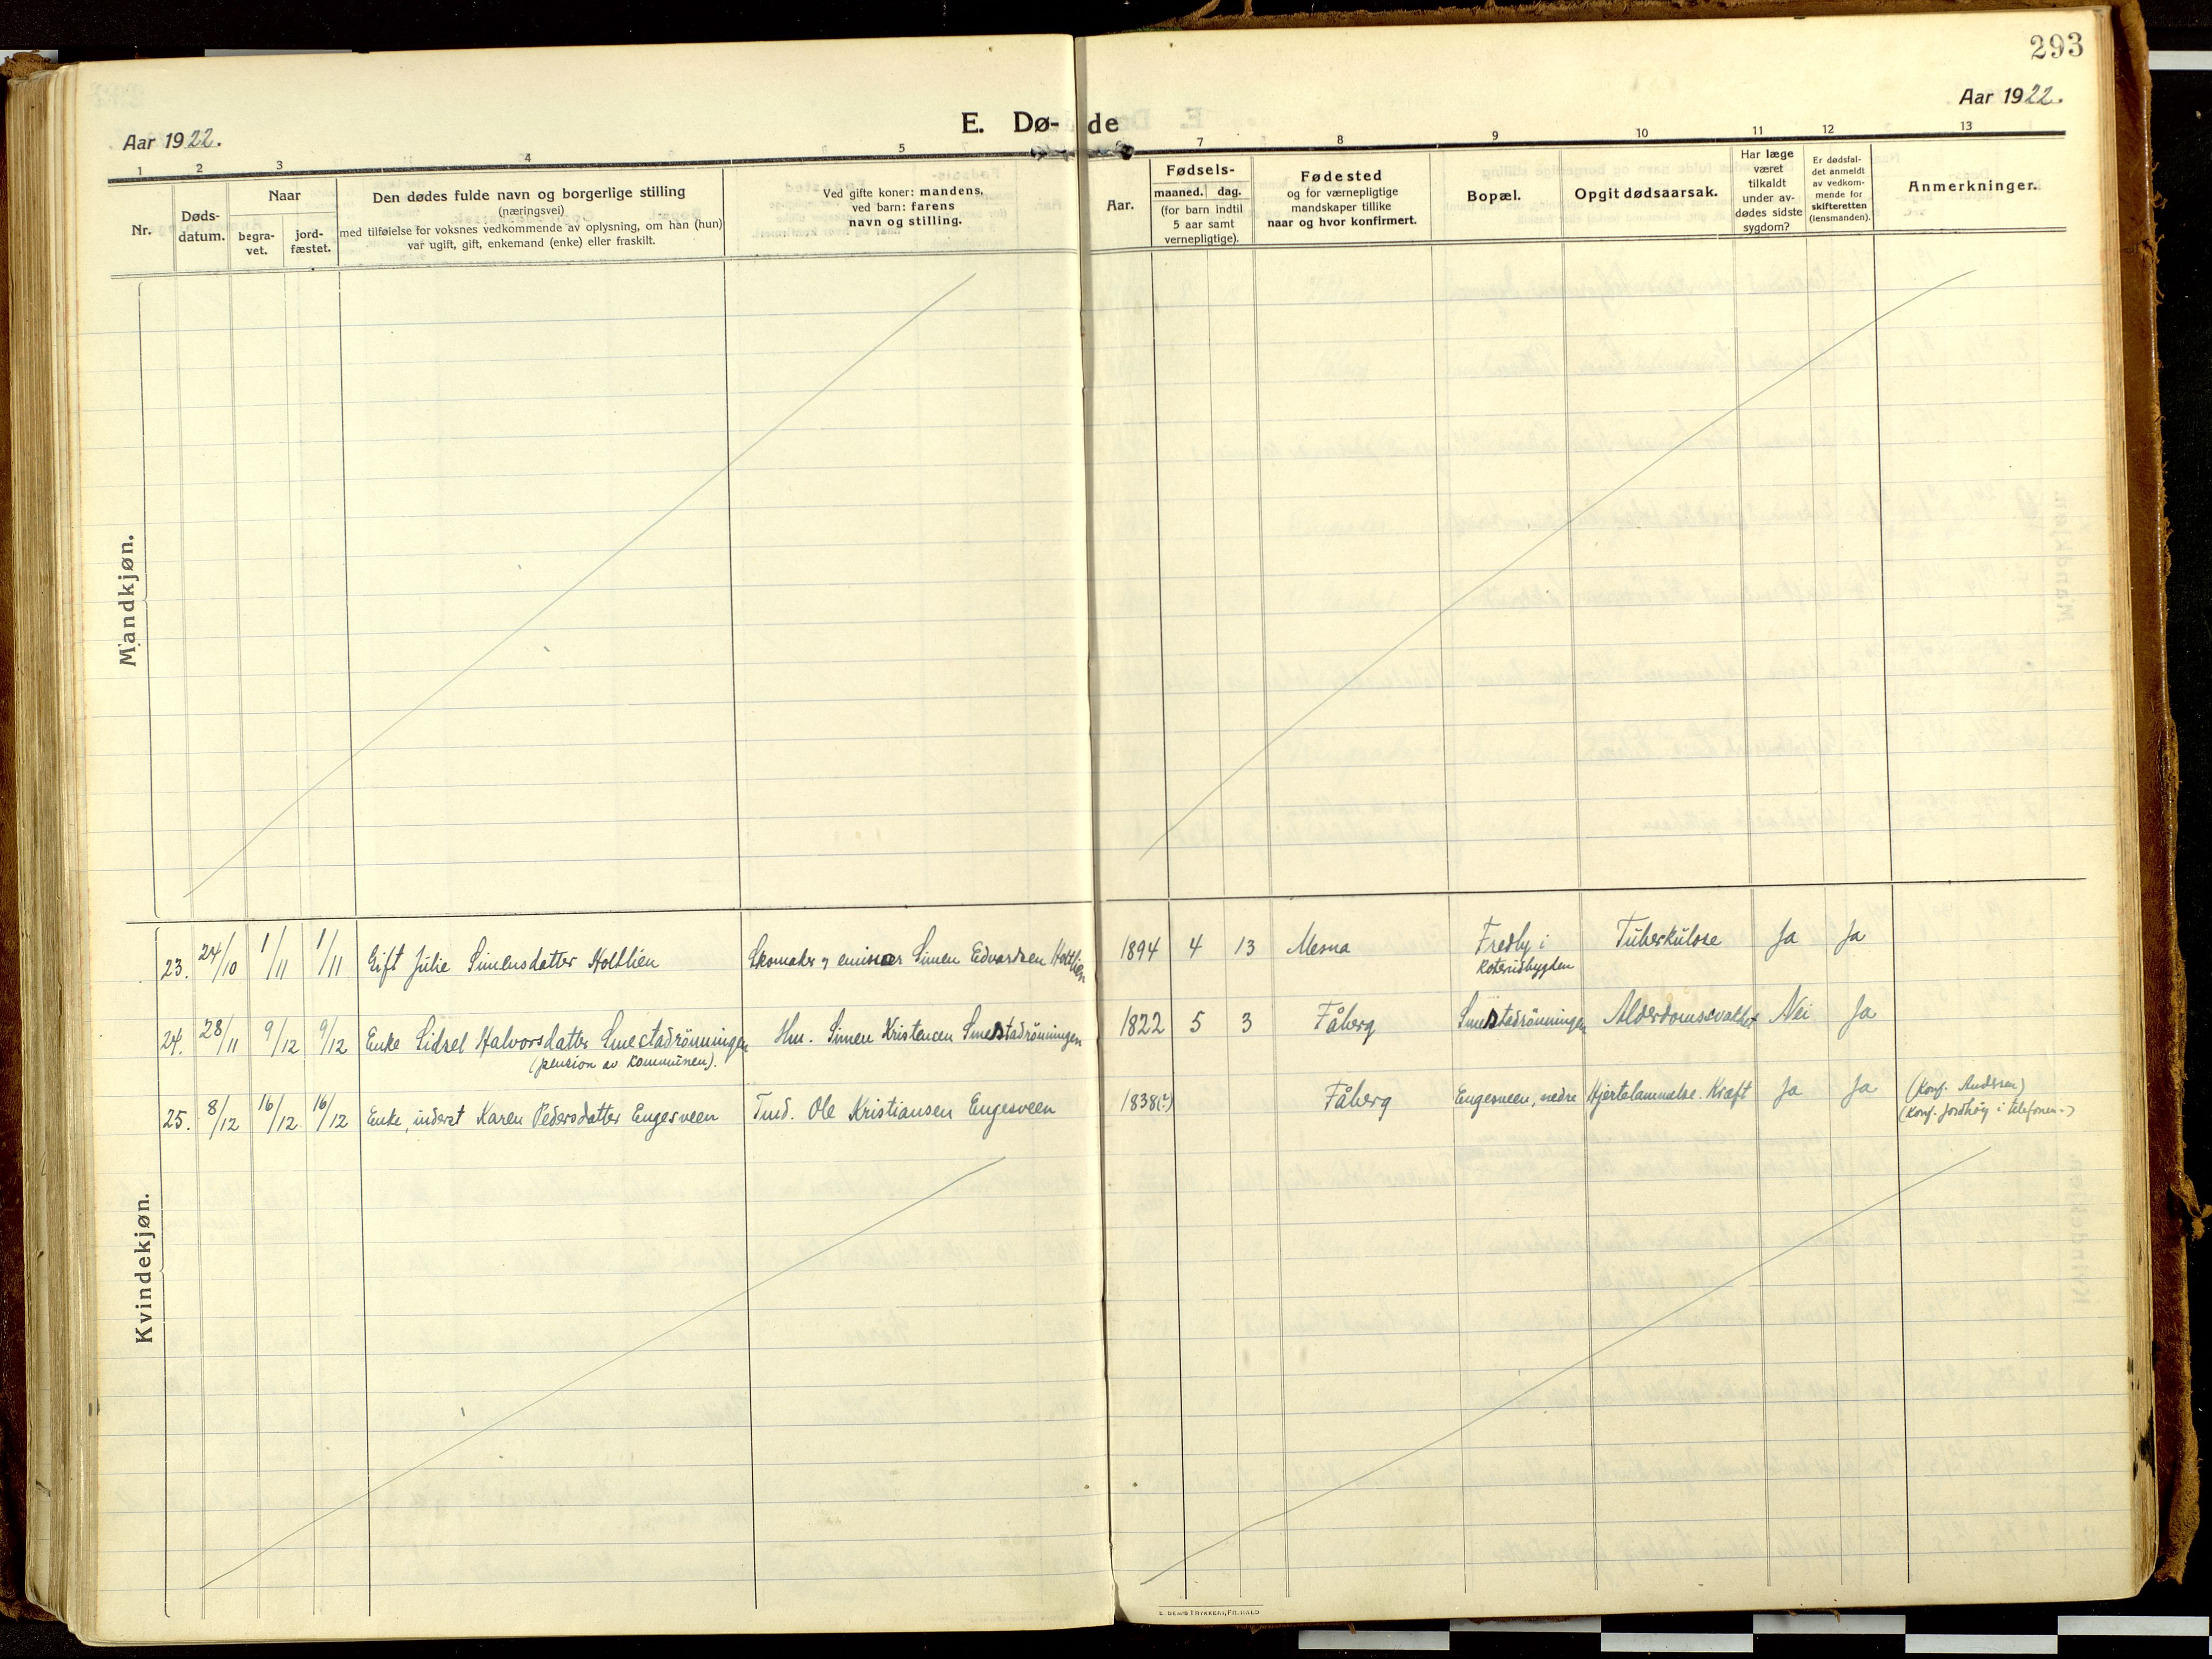 293
Aar 1922.
Aar 1922.
E. Dø- de
1 2 3 4 5 7 8 9 10 11 12 13
Nr.
Døds-
datum.
Naar
begra-
vet.
jord-
fæstet.
Den dødes fulde navn og borgerlige stilling
(næringsvei)
med tilføielse for voksnes vedkommende av oplysning, om han (hun)
var ugift, gift, enkemand (enke) eller fraskilt.
Ved gifte koner: mandens,
ved barn: farens
navn og stilling.
Aar.
Fødsels-
maaned. dag.
(for barn indtil
5 aar samt
vernepligtige).
Fødested
og for værnepligtige
mandskaper tillike
naar og hvor konfirmert.
Bopæl.
Opgit dødsaarsak.
Har læge
været
tilkaldt
under av-
dødes sidste
sygdom?
Er dødsfal-
det anmeldt
av vedkom-
mende for
skifteretten
(lensmanden).
Anmerkninger.
Mandkjøn.
Kvindekjøn.
23. 24/10 1/11 1/11 Gift Julie Simensdatter Holtlien Skomaker og emissær Simen Edvardsen Holtlien 1894 4 13 Mesna Fredly i Tuberkulose Ja Ja
24. 28/11 9/12 9/12 Enke Sidsel Halvorsdatter Smestadrönningen Hm. Simen Kristensen Smestadrönningen 1822 5 3 Fåberg Smestadrönningen Alderdomssvakhet Nei Ja
(pension av kommunen).
25. 8/12 16/12 16/12 Enke, inderst Karen Pedersdatter Engesveen Tmd. Ole Kristiansen Engesveen 1838(?) Fåberg Engesveen, nedre Hjertelammelse. Kræft Ja Ja (Konf. Andersen)
(Konf. Jordhøy i telefonen-)